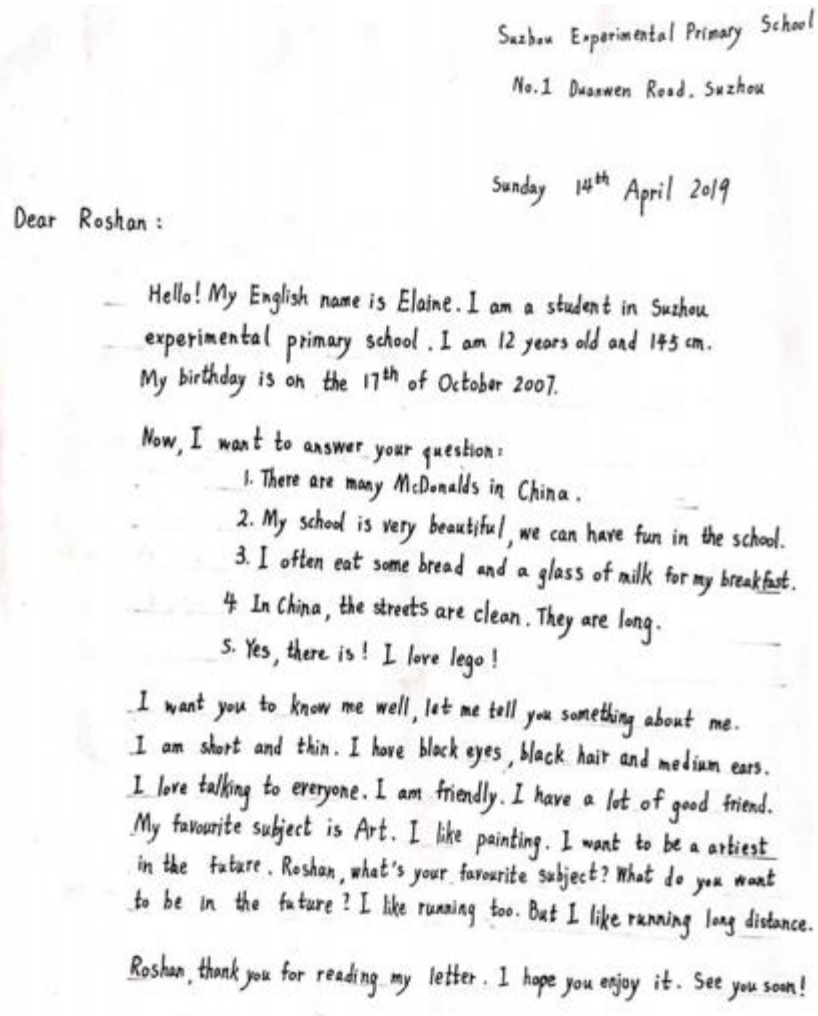 Suzhou Experimental Primary School
No.1 Duanwen Road. Suzhou
Sunday 14th April 2019
Dear Roshan :
Hello! My English name is Elaine. I am a student in Suzhou
experimental primary school. I am 12 years old and 145 cm.
My birthday is on the 17th of October 2007.
Now, I want to answer your question:
1. There are many McDonalds in China.
2. My school is very beautiful, we can have fun in the school.
3. I often eat some bread and a glass of milk for my breakfast.
4 In China, the streets are clean. They are long.
5. Yes, there is! I love lego!
I want you to know me well, let me tell you something about me.
I am short and thin. I have black eyes, black hair and medium ears.
I love talking to everyone. I am friendly. I have a lot of good friend.
My favourite subject is Art. I like painting. I want to be a artiest
in the future. Roshan, what's your favourite subject? What do you want
to be in the future? I like running too. But I like running long distance.
Roshan, thank you for reading my letter. I hope you enjoy it. See you soon!